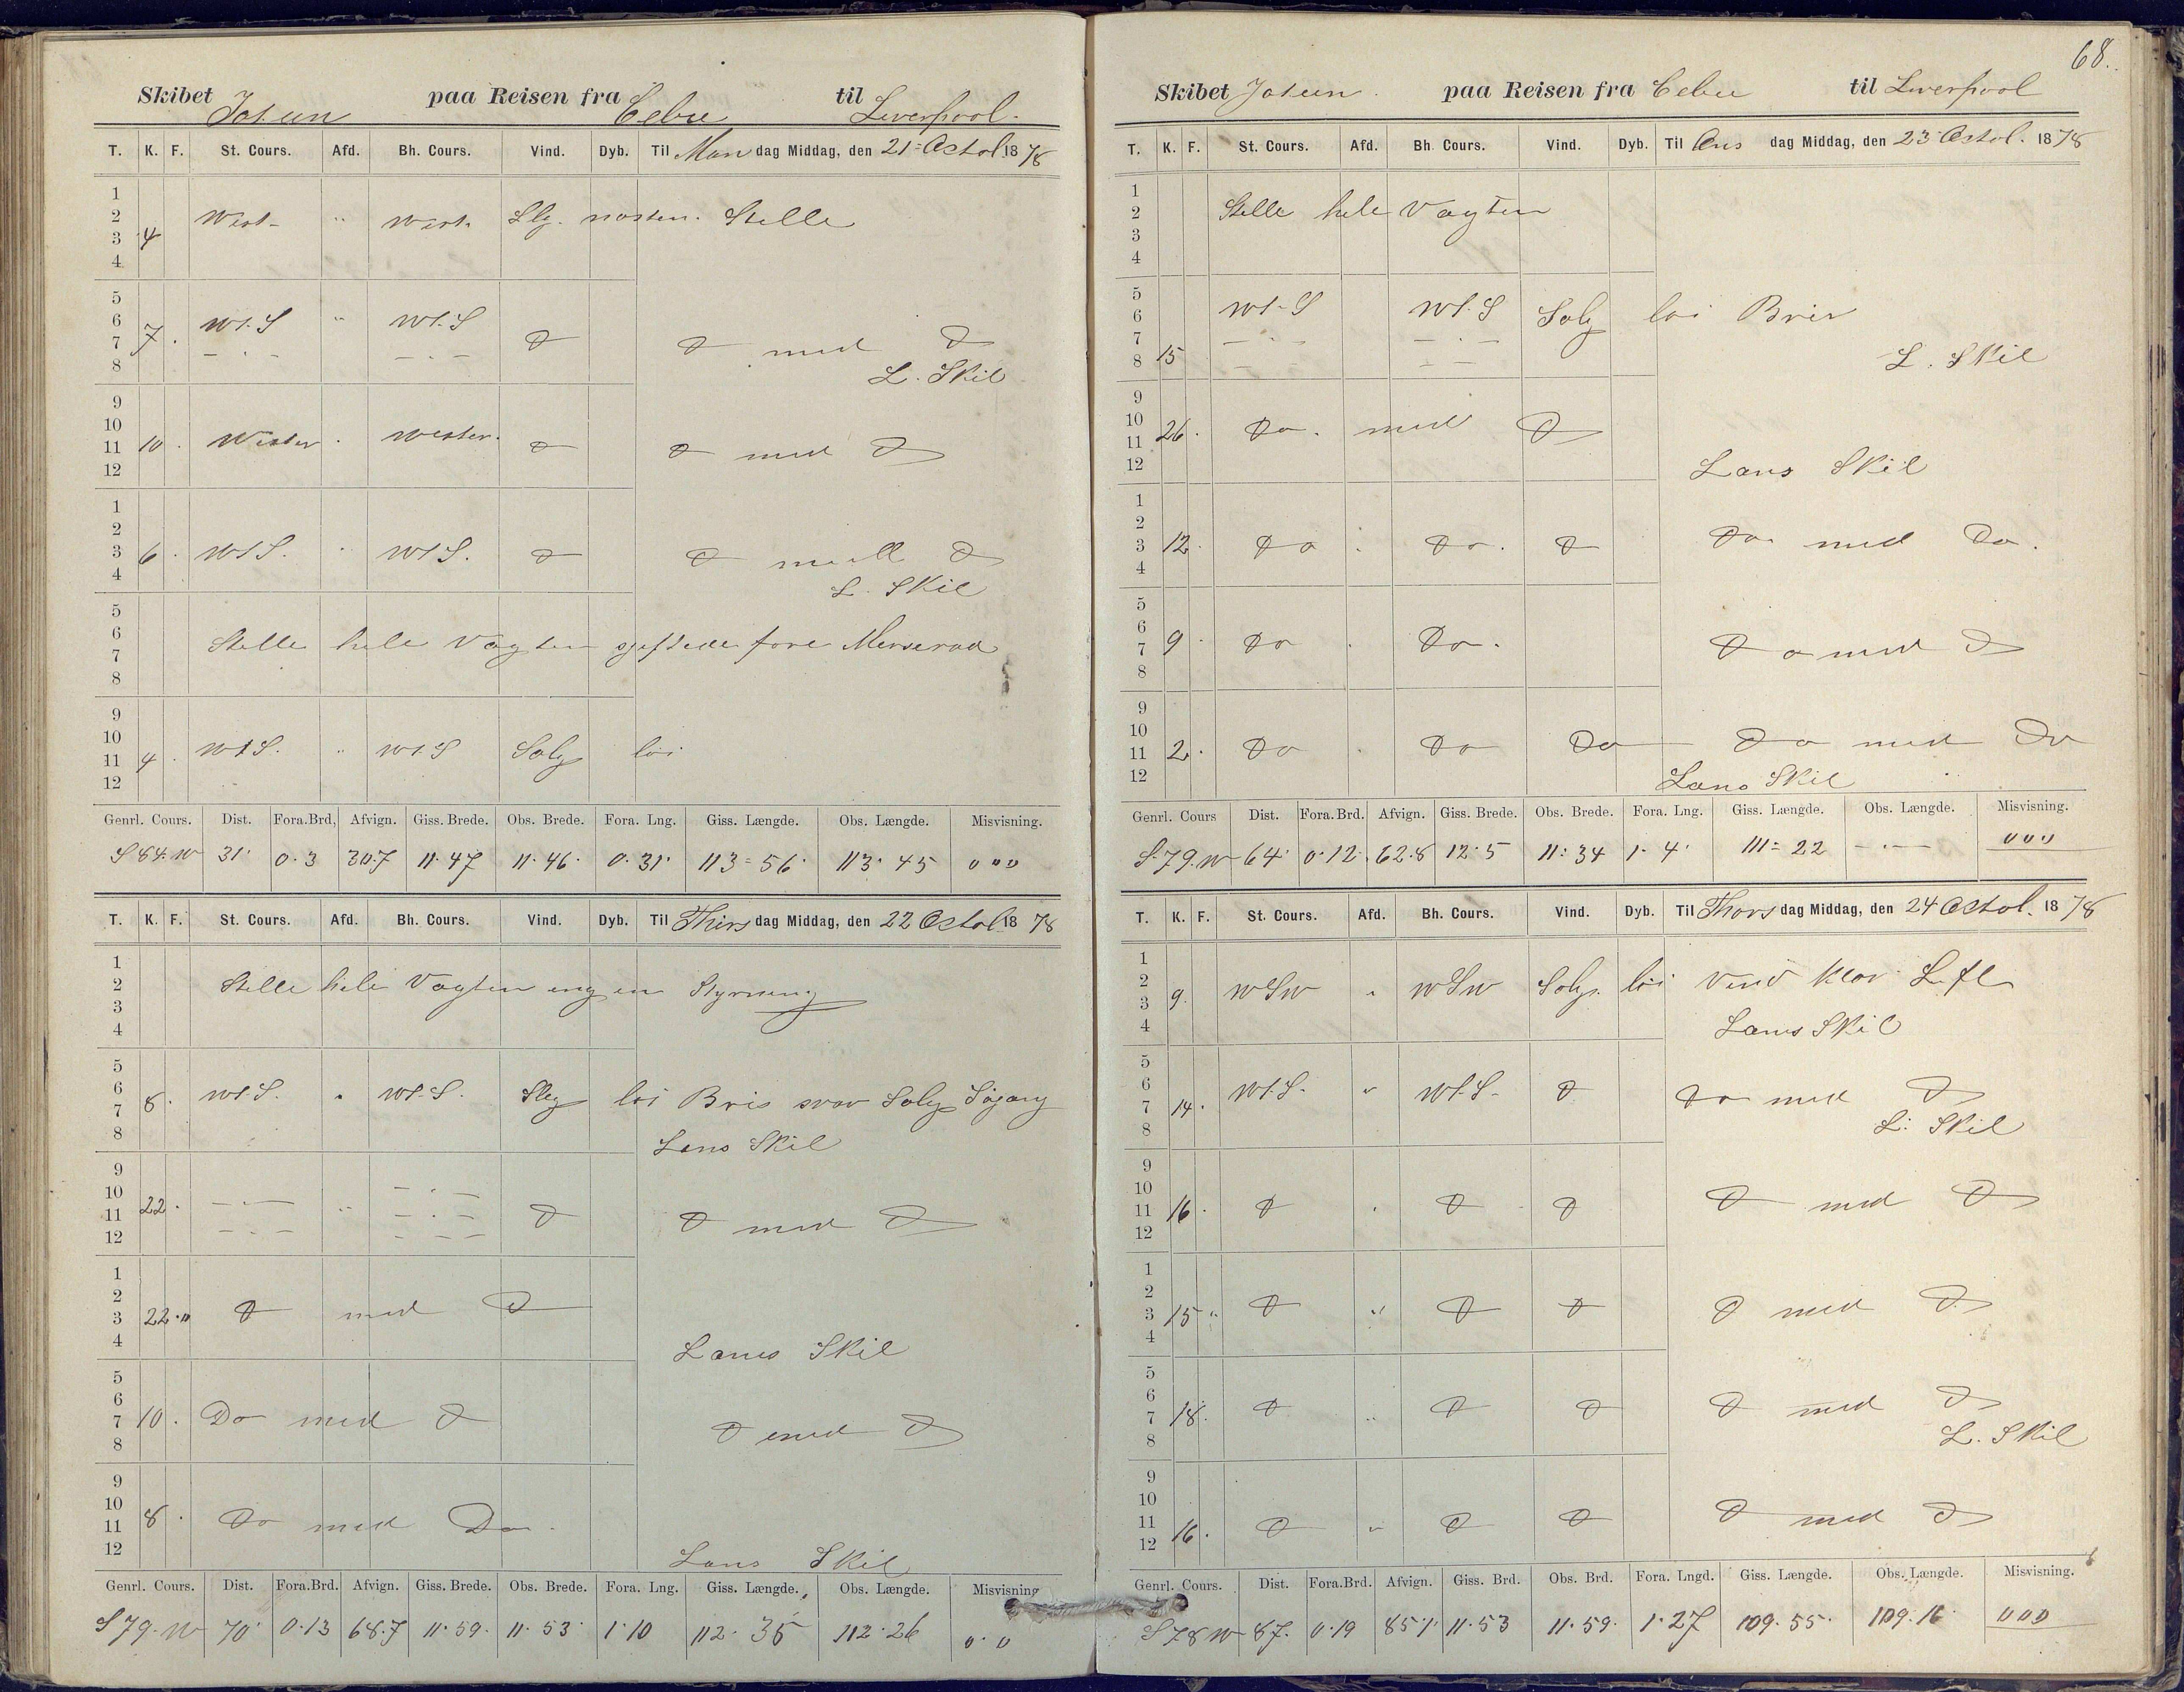 Skibet Jotun paa Reisen fra Cebu til Liverpool.
T. K. F. St. Cours. Afd. Bh. Cours. Vind. Dyb. Til Man dag Middag, den 21 = Octob 18 78
1
2 West " West. Stille
3 4
4
5
6 Wt.S " Wt.S
7 7. D D med D
8 L. Skil
9
10
11 10. Wester. Wester. D D med D
12
1
2
3 6. WtS. " WtS. D D med D
4 L. Skil
5
6 Stille hele Vagten
7
8
9
10
11 4. WtS. " WtS Solg løi
12
Genrl. Cours. Dist. Fora. Brd, Afvign. Giss. Brede. Obs. Brede. Fora. Lng. Giss. Længde. Obs. Længde. Misvisning.
S 84. W 31. 0.3 30.7 11.47 11.46. 0.31. 113=56. 113.45 000
T. K. F. St. Cours. Afd. Bh. Cours. Vind. Dyb. Til Thirs dag Middag, den 22 Octob 18 78
1
2 Stille hele Vagten engen Styrning
3
4
5
6
7 8. WtS. " WtS. Slg løi Bris svar Solg Søgang
8 Lans Skil
9
10
11 22. — " — D D med D
12
1
2
3 22." D med D
4 Lans Skil
5
6
7 10. Do med D D med D
8
9
10
11 8. Do med Do.
12 Lans Skil
Genrl. Cours. Dist. Fora. Brd. Afvign. Giss. Brede. Obs. Brede. Fora. Lng. Giss. Længde. Obs. Længde. Misvisning
S 79. W 70. 0.13 68.7 11.59. 11.53 1.10 112.35 112.26 0.0
68.
Skibet Jotun. paa Reisen fra Cebu til Liverpool
T. K. F. St. Cours. Afd. Bh. Cours. Vind. Dyb. Til Ons dag Middag, den 23 Octob. 18 78
1
2 Stille hele Vagten
3
4
5
6 Wt.S Wt.S Solg løi Bris
7
8 15 L. Skil
9
10
11 26. Do. med D
12 Lans Skil
1
2
3 12. Do " Do. D Do. med Do.
4
5
6
7 9. Do. Do. Do med D
8
9
10
11 2. Do. Do Do Do med Do
12 Lans Skil
Genrl. Cours Dist. Fora. Brd. Afvign. Giss. Brede. Obs. Brede. Fora. Lng. Giss. Længde. Obs. Længde. Misvisning.
S. 79. W 64. 0.12. 62.8 12.5 11:34 1.4. 111=22 — 000
T. K. F. St. Cours. Afd. Bh. Cours. Vind. Dyb. Til Thors dag Middag, den 24 Octob. 18 78
1
2
3 9. WSW " WSW Solg. løi Vind klar Lft
4 Lans Skil
5
6
7 14. Wt.S. " Wt.S. D Do med D
8 L. Skil
9
10
11 16. D " D D D med D
12
1
2
3 15 " D " D D D med D
4
5
6
7 18. D " D D D med D
8 L. Skil
9
10
11 16. D " D D D med D
12
Genrl. Cours. Dist. Fora. Brd. Afvign. Giss. Brd. Obs. Brd. Fora. Lngd. Giss. Længde. Obs. Længde. Misvisning.
S 78 W 87. 0.19 85.1. 11.53 11.59. 1.27 109.55. 109.16 000